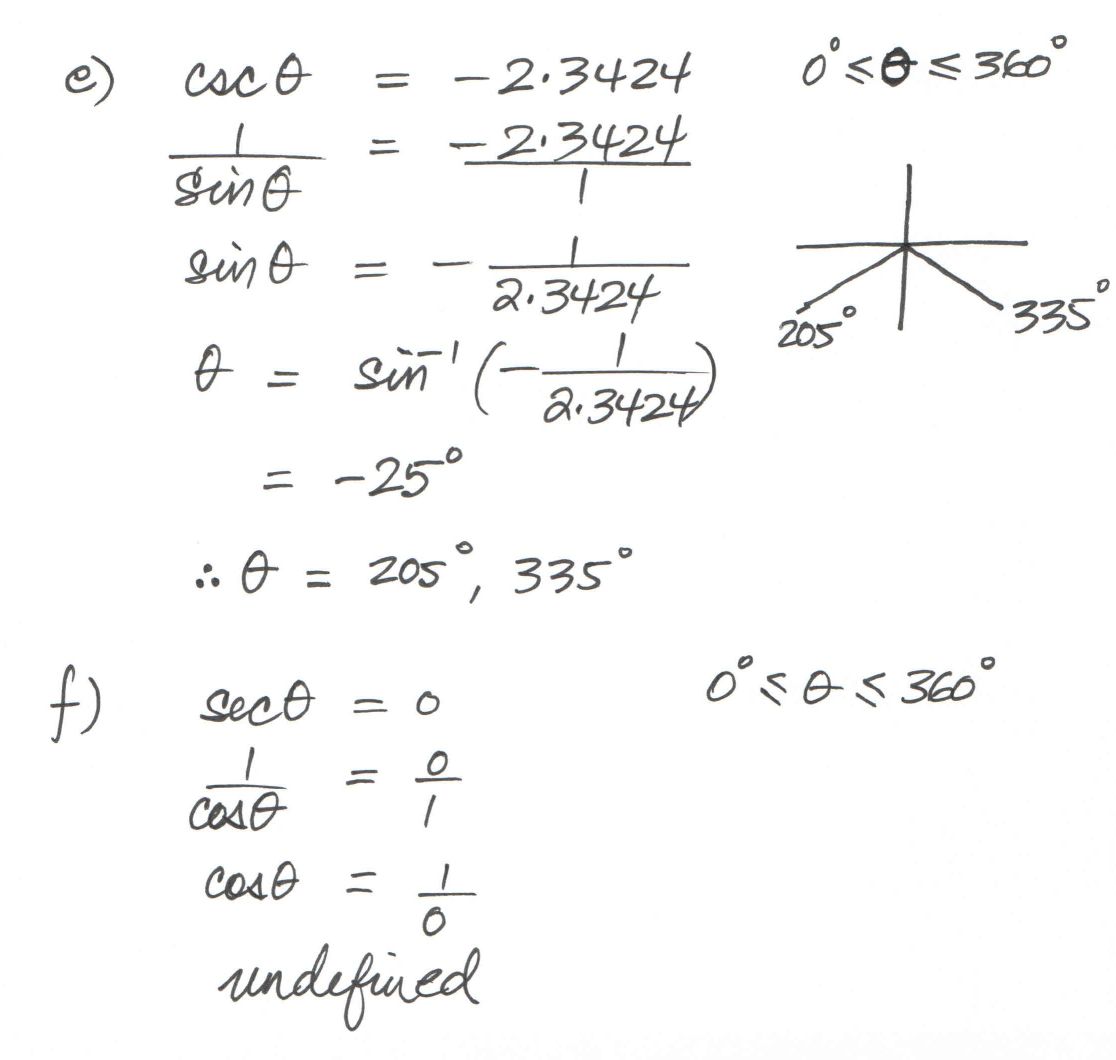 e) csc θ = -2.3424 0° ≤ θ ≤ 360°
1/sin θ = -2.3424/1
sin θ = - 1/2.3424
205° 335°
θ = sin⁻¹(- 1/2.3424)
= -25°
∴ θ = 205°, 335°
f) sec θ = 0 0° ≤ θ ≤ 360°
1/cos θ = 0/1
cos θ = 1/0
undefined